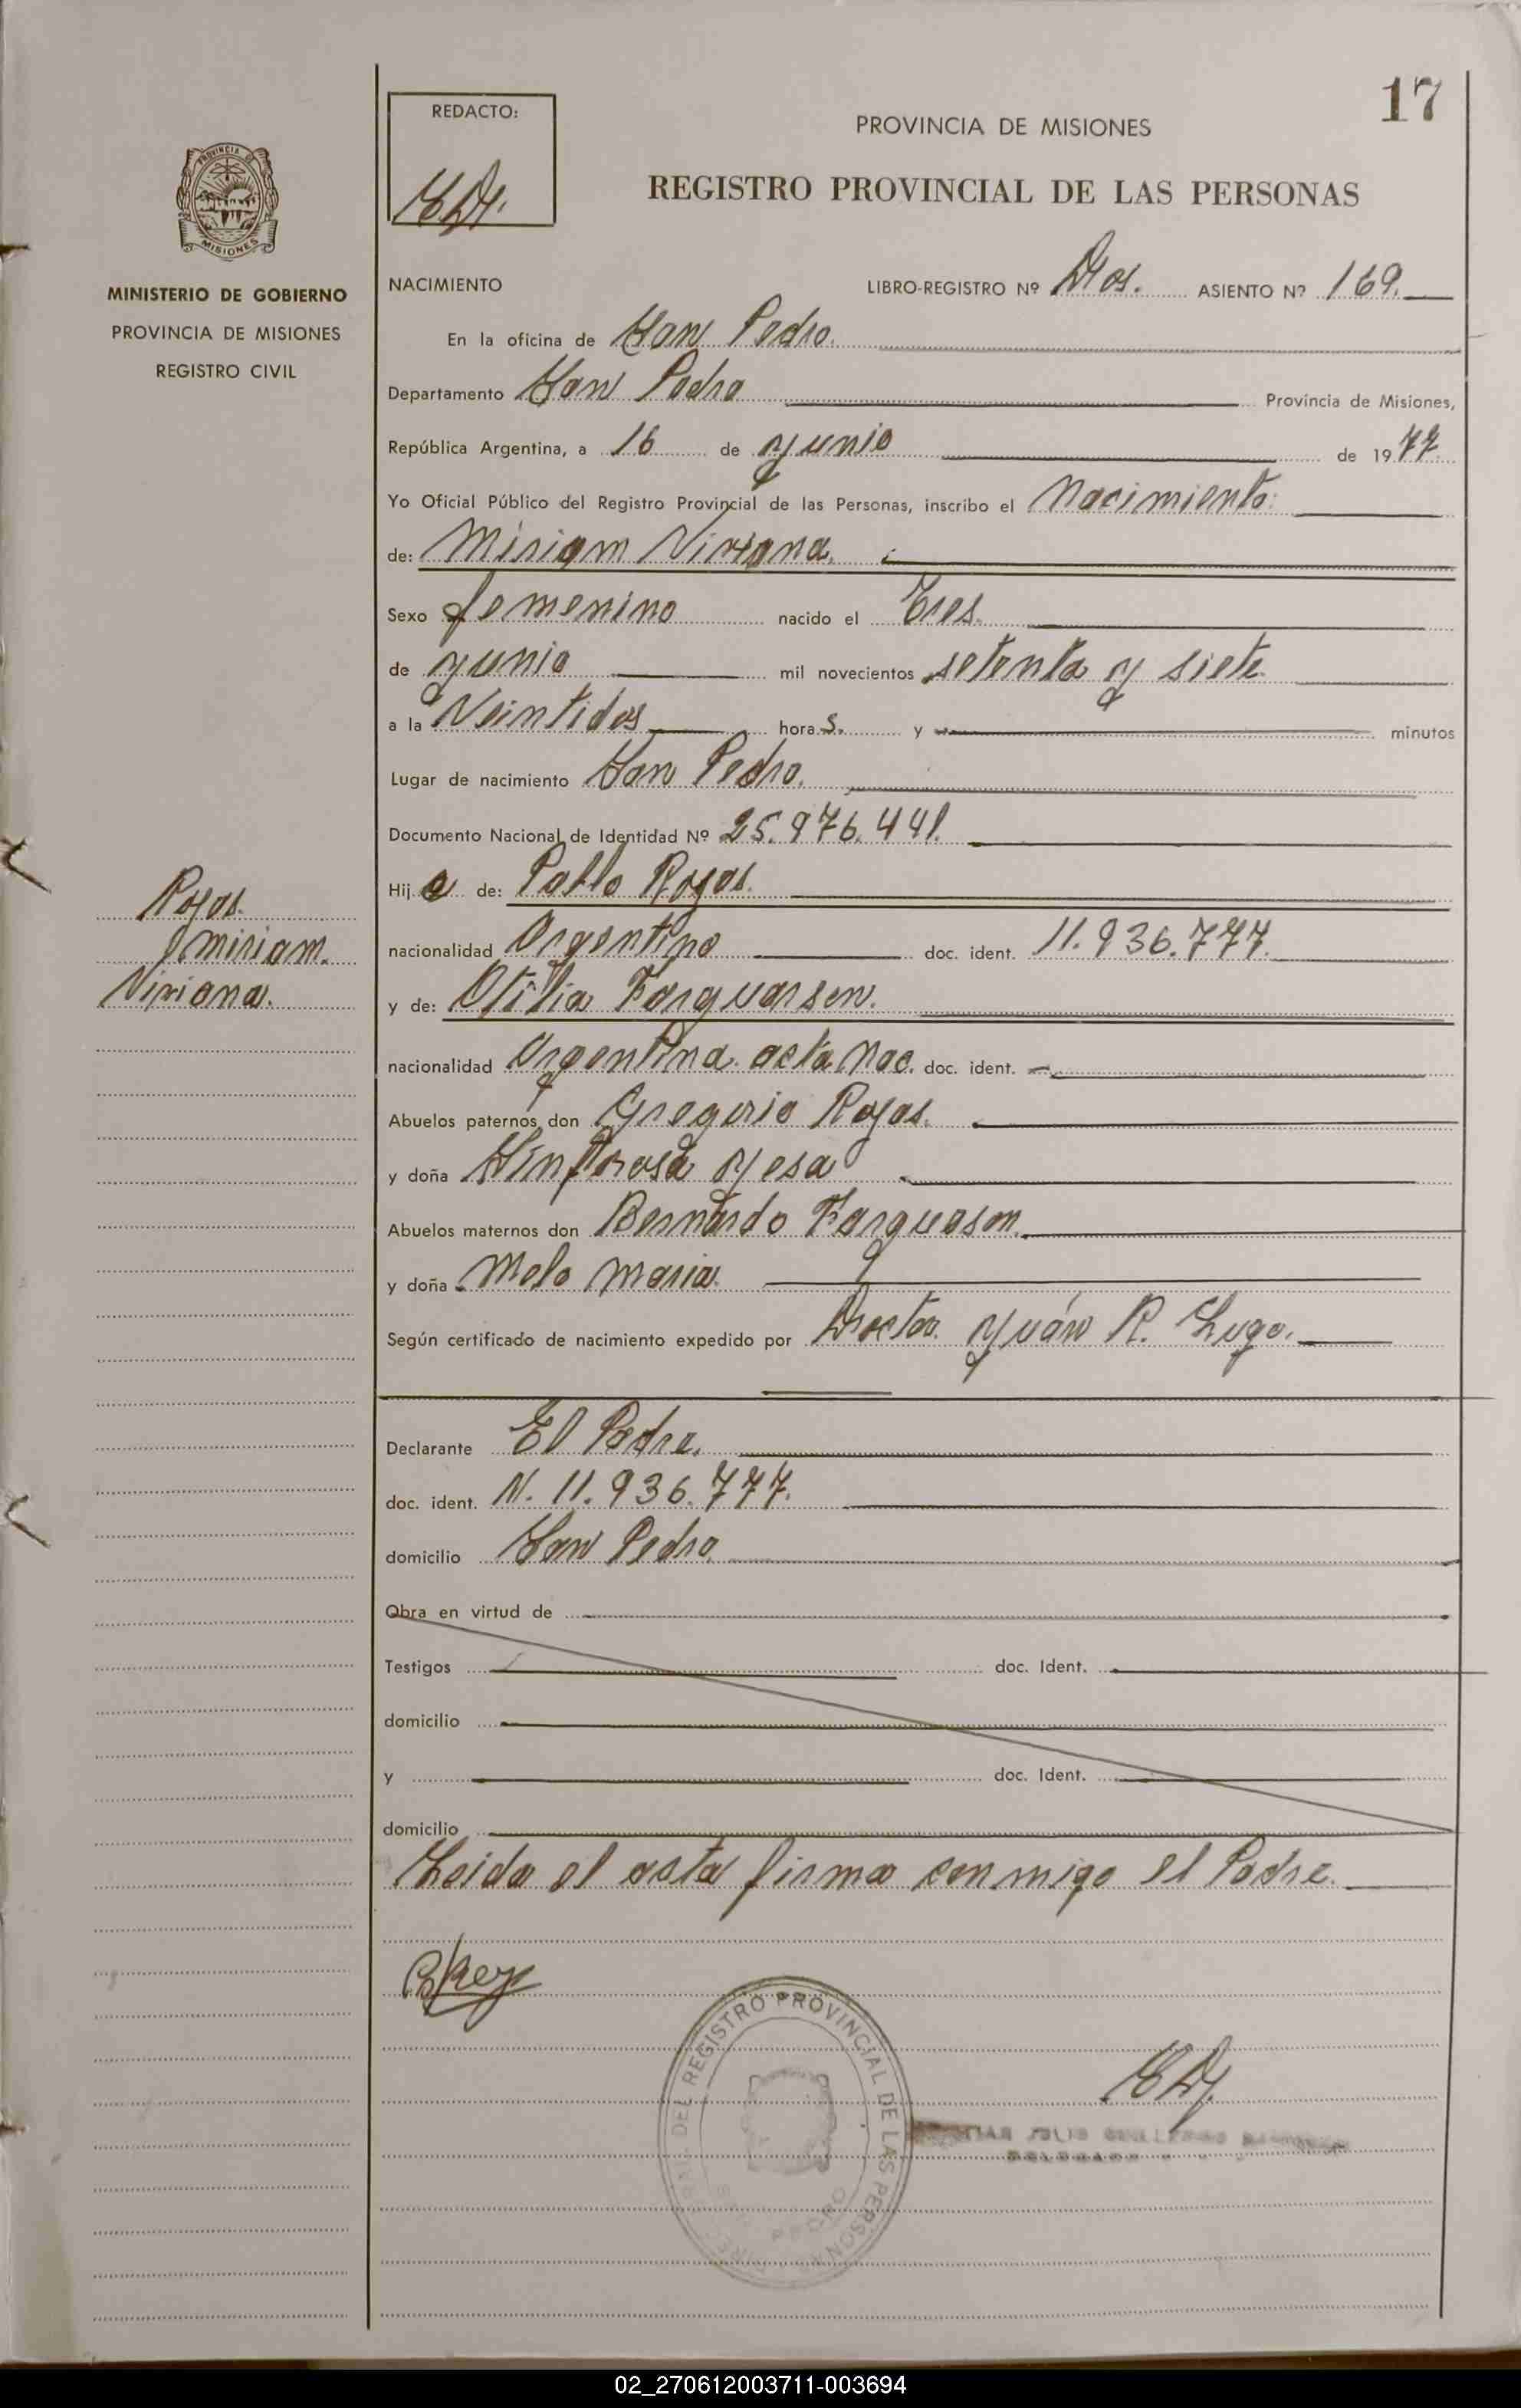 17
REDACTO:
PROVINCIA DE MISIONES
REGISTRO PROVINCIAL DE LAS PERSONAS
PROVINCIA DE
MISIONES
MINISTERIO DE GOBIERNO
PROVINCIA DE MISIONES
REGISTRO CIVIL
NACIMIENTO LIBRO-REGISTRO Nº Dos. ASIENTO Nº 169.
En la oficina de San Pedro.
Departamento San Pedro Provincia de Misiones,
República Argentina, a 16 de Junio de 1977
Yo Oficial Público del Registro Provincial de las Personas, inscribo el Nacimiento.
de: Miriam Viviana.
Sexo femenino nacido el Tres.
de Junio mil novecientos setenta y siete.
a la Veintidos hora s. y minutos
Lugar de nacimiento San Pedro.
Documento Nacional de Identidad Nº 25.976.441.
Hij a de: Pablo Rojas.
Rojas.
Miriam.
Viviana.
nacionalidad Argentino doc. ident. 11.936.777.
y de: Otilia Farguarsen.
nacionalidad Argentina. acta Nac. doc. ident.
Abuelos paternos, don Gregorio Rojas.
y doña Sinforosa Yesa
Abuelos maternos don Bernardo Farguason.
y doña Melo Maria.
Según certificado de nacimiento expedido por Doctor. Juán R. Lugo.
Declarante El Padre.
doc. ident. N. 11.936.777.
domicilio San Pedro
Obra en virtud de
Testigos doc. Ident.
domicilio
y doc. Ident.
domicilio
Leida el acta firma conmigo el Padre.
DEL REGISTRO PROVINCIAL DE LAS PERSONAS
PEDRO
DELEGADO
02_270612003711-003694